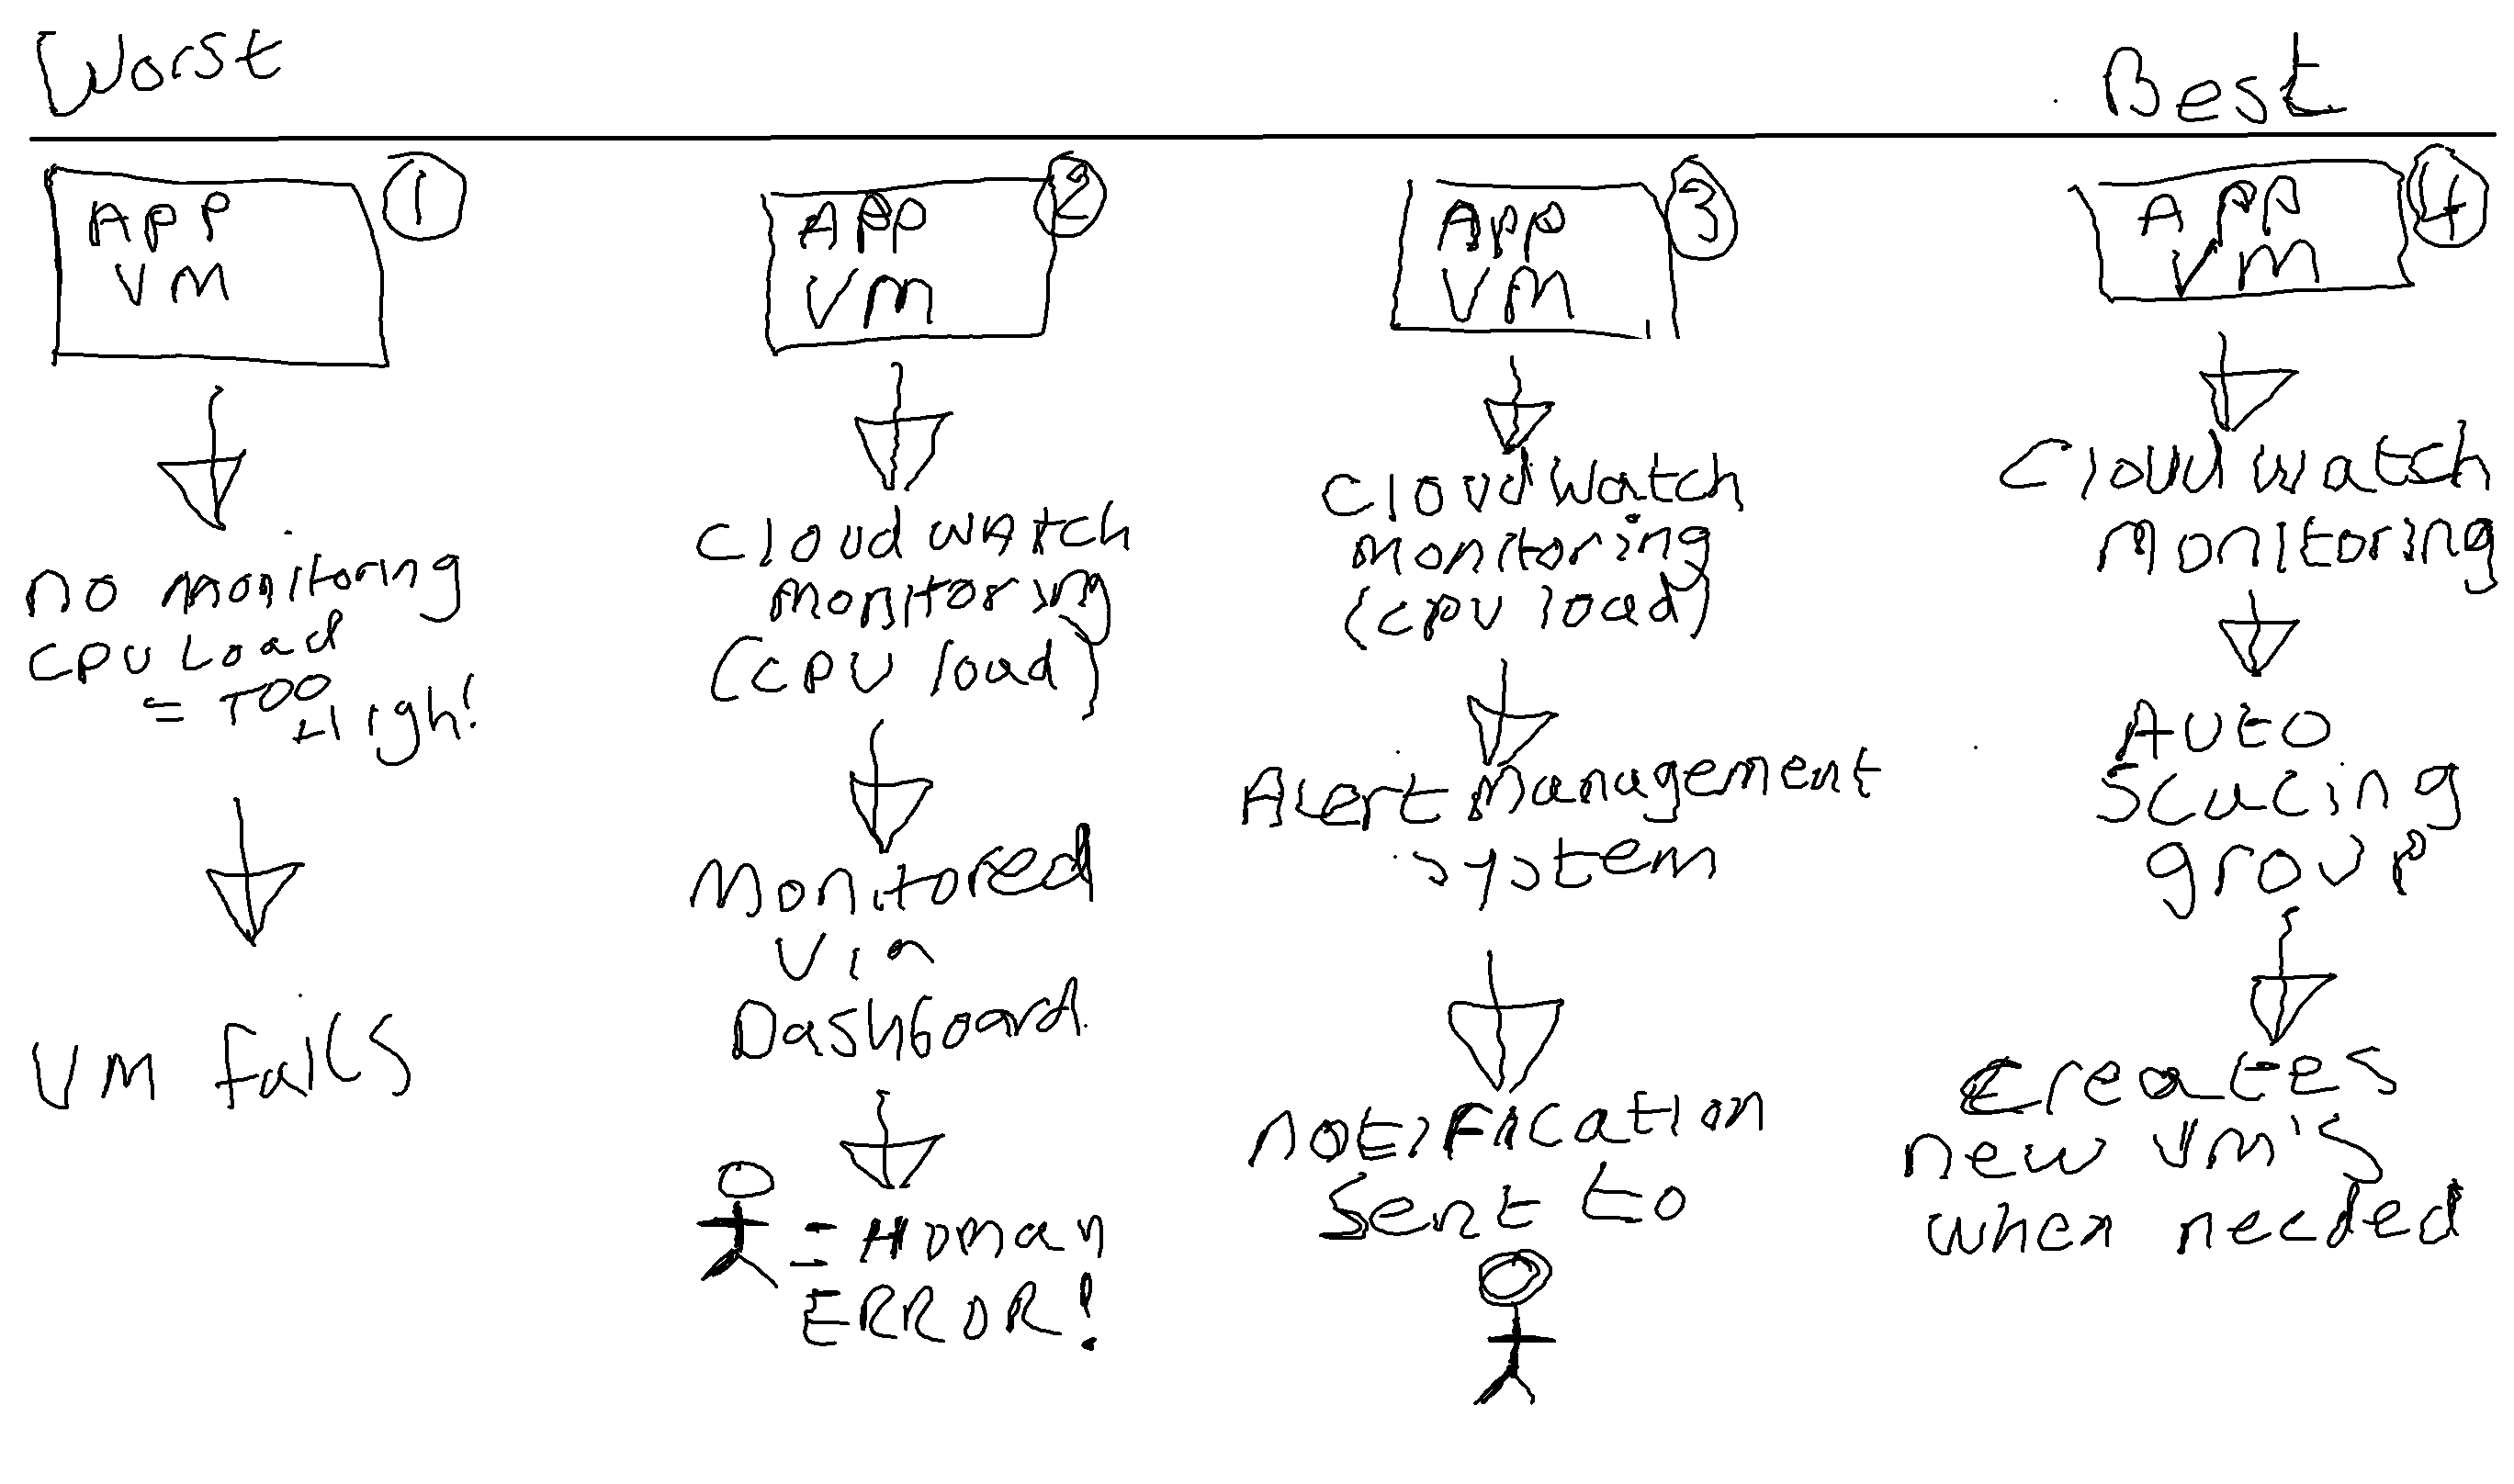 Worst
Best
1
APP
VM
no monitoring
CPU Load
= TOO
High!
VM fails
2
APP
VM
Cloud WAtch
monitoring
(CPU load)
Monitored
Via
Dashboard.
= Human
ERROR!
3
APP
VM
Cloud Watch
monitoring
(cpu load)
Alert Management
system
notification
Sent to
4
APP
VM
Cloud watch
Monitoring
Auto
Scaling
group
Creates
new VM's
when needed